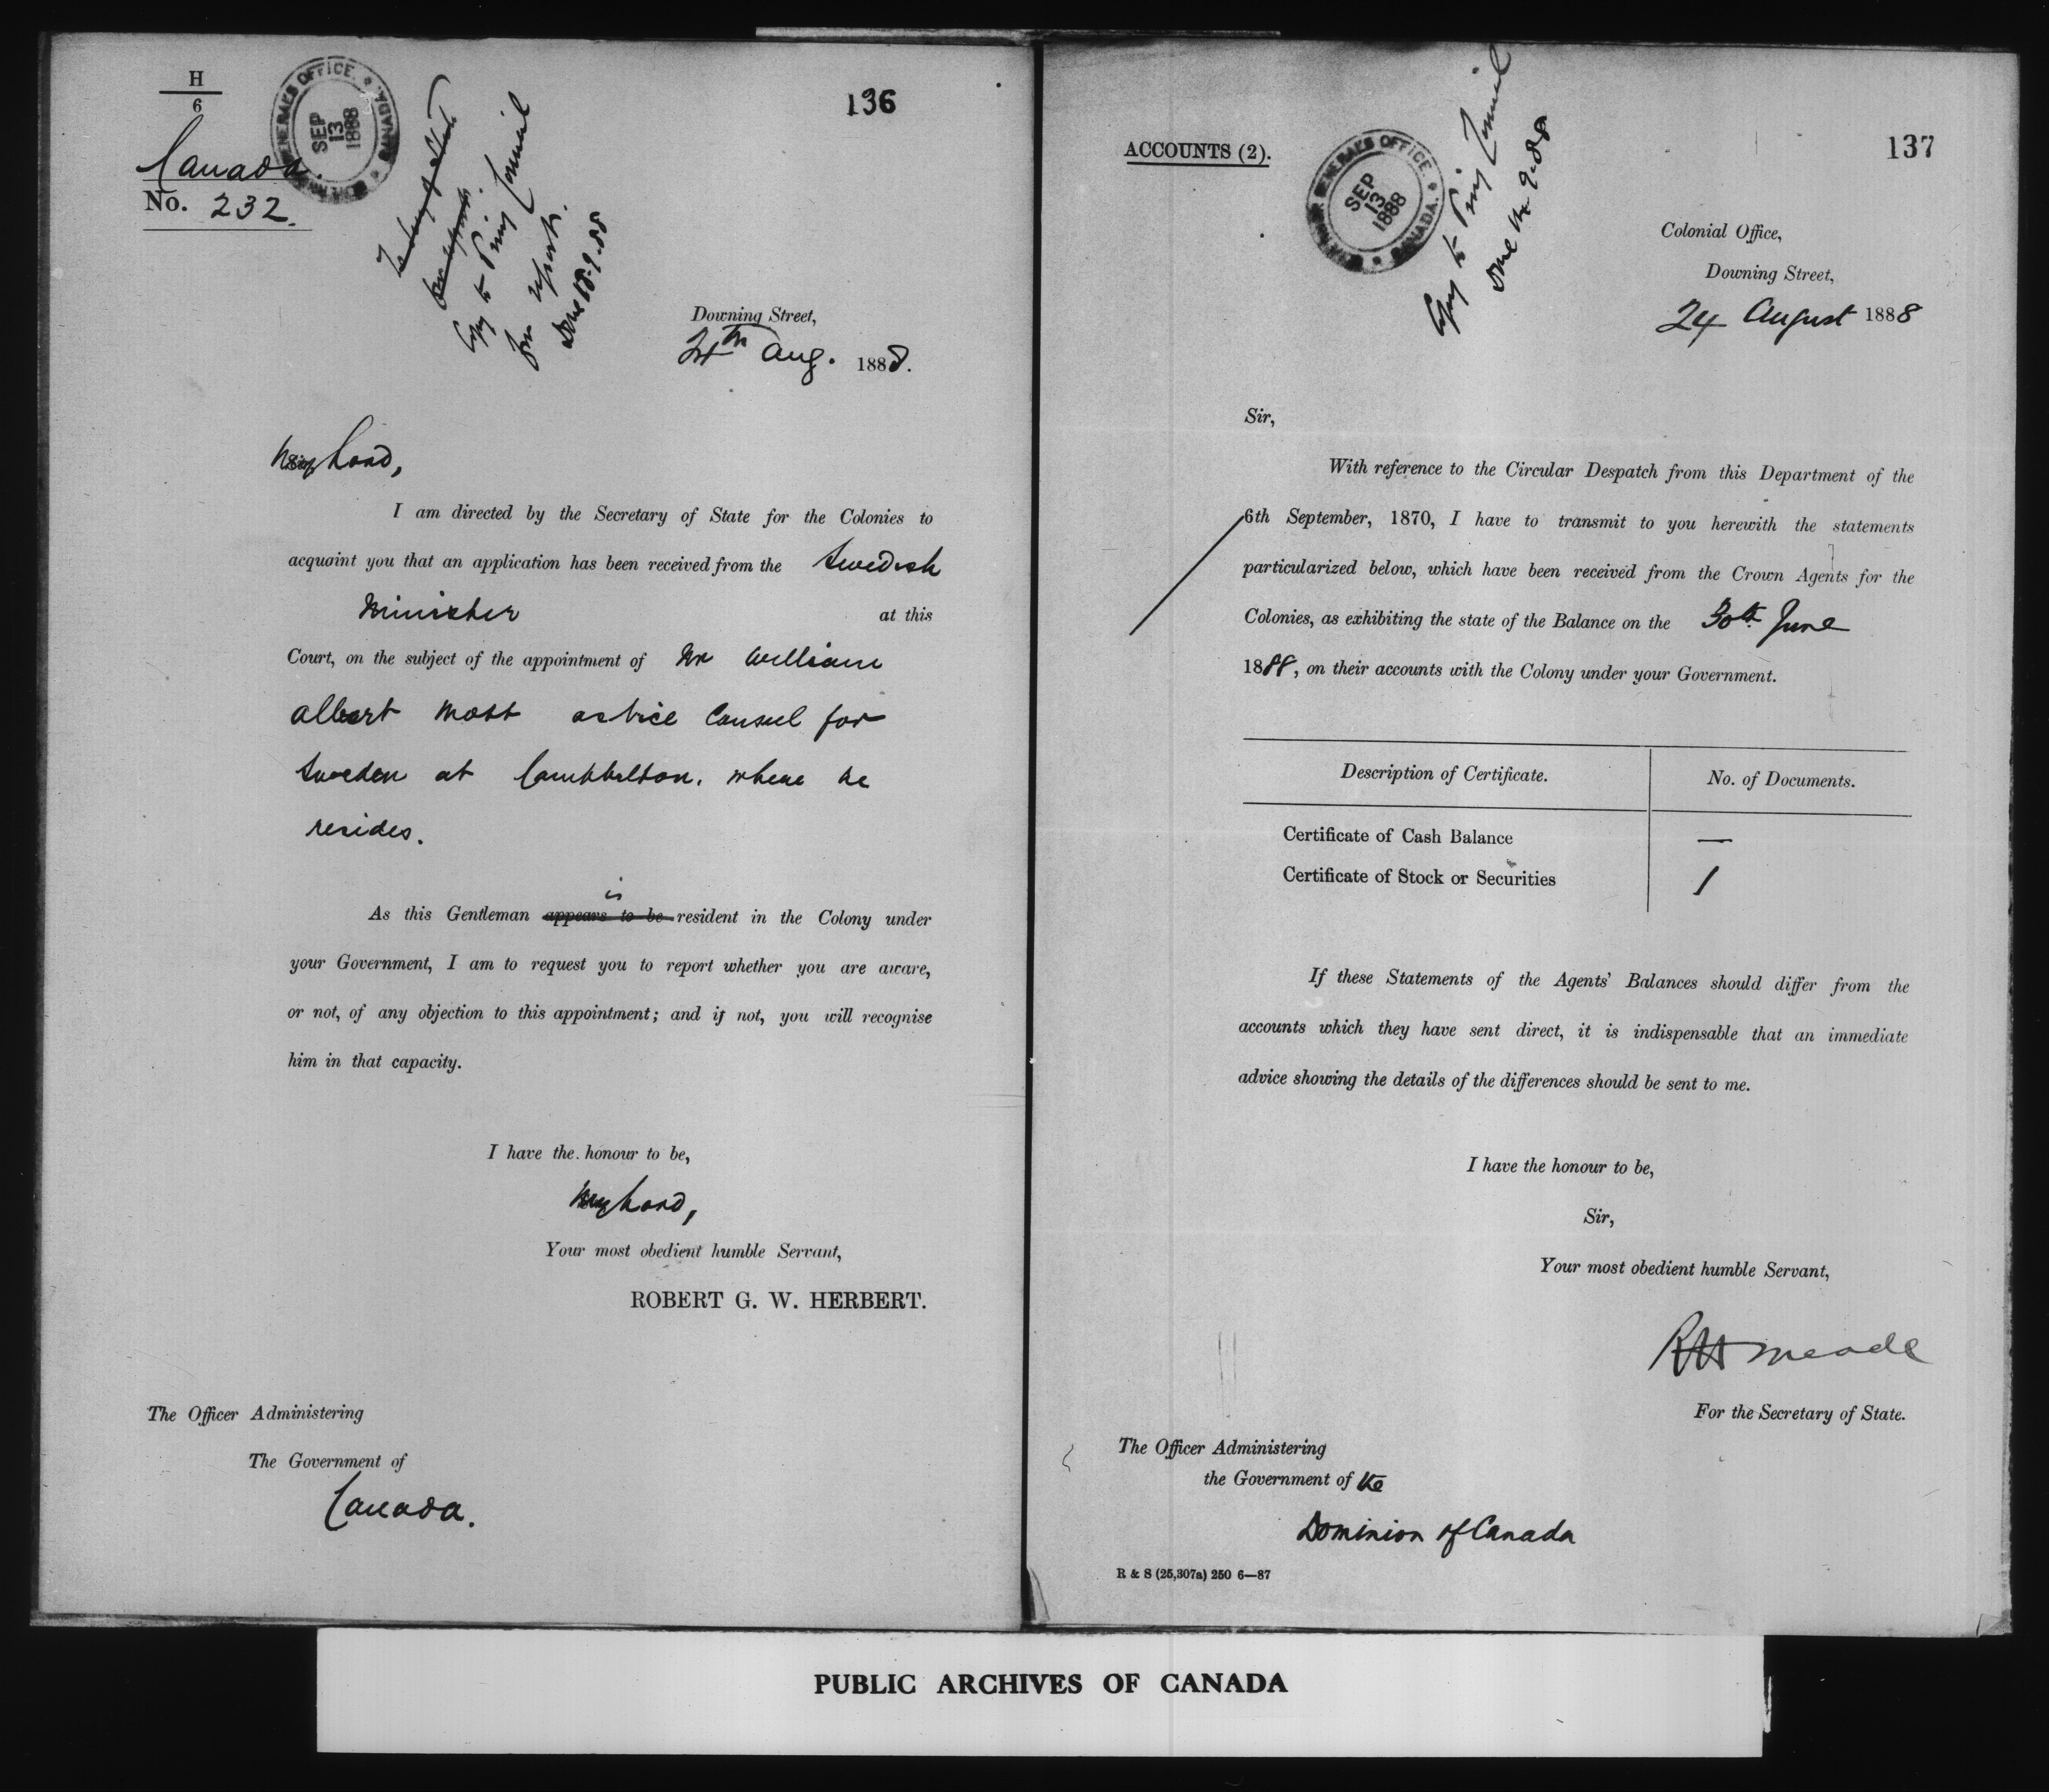 H
6
Canada.
No. 232.
GOVERNOR GENERAL'S OFFICE.
SEP
13
1888
CANADA.
136
Copy to Privy Council
for report.
Done 18.9.88
Downing Street,
24th Aug. 1888.
My Lord,
I am directed by the Secretary of State for the Colonies to
acquaint you that an application has been received from the Swedish
Minister at this
Court, on the subject of the appointment of Mr William
Albert Mott as Vice Consul for
Sweden at Campbelton, where he
resides.
is
As this Gentleman appears to be resident in the Colony under
your Government, I am to request you to report whether you are aware,
or not, of any objection to this appointment; and if not, you will recognise
him in that capacity.
I have the honour to be,
My Lord,
Your most obedient humble Servant,
ROBERT G. W. HERBERT.
The Officer Administering
The Government of
Canada.
ACCOUNTS (2).
GOVERNOR GENERAL'S OFFICE
SEP
13
1888
CANADA.
Copy to Privy Council
137
Colonial Office,
Downing Street,
24 August 1888
Sir,
With reference to the Circular Despatch from this Department of the
6th September, 1870, I have to transmit to you herewith the statements
particularized below, which have been received from the Crown Agents for the
Colonies, as exhibiting the state of the Balance on the 30th June
1888, on their accounts with the Colony under your Government.
Description of Certificate. No. of Documents.
Certificate of Cash Balance —
Certificate of Stock or Securities 1
If these Statements of the Agents' Balances should differ from the
accounts which they have sent direct, it is indispensable that an immediate
advice showing the details of the differences should be sent to me.
I have the honour to be,
Sir,
Your most obedient humble Servant,
RH Meade
For the Secretary of State.
The Officer Administering
the Government of the
Dominion of Canada
R & S (25,307a) 250 6—87
PUBLIC ARCHIVES OF CANADA